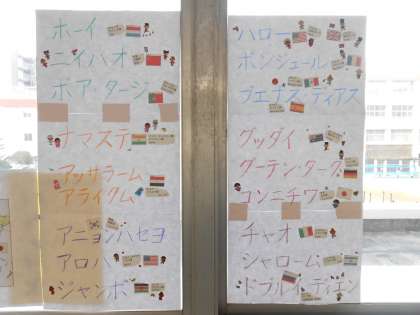 ホーイ
ニイハオ
ボア・タージ
ナマステ
アッサラーム
アライクム
アニョンハセヨ
アロハ
ジャンボ
ハロー
ボンジュール
ブエナス・ディアス
グッダイ
グーテン・ターク
コンニチワ
チャオ
シャローム
ドブルイ・ディエン